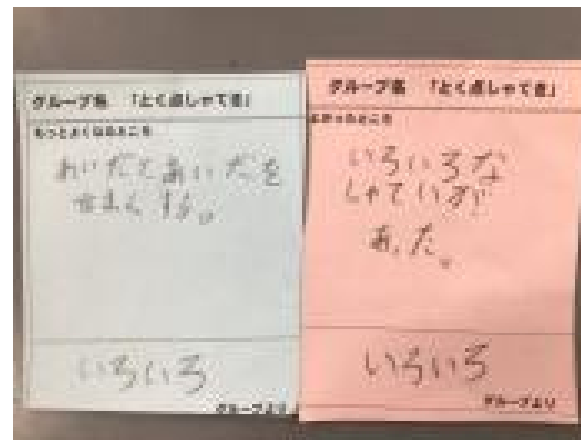 グループ名 「とく点しゃてき」
もっとよくなるところ
あいだとあいだを
せまくする。
いろいろ
グループより
グループ名 「とく点しゃてき」
よかったところ
いろいろな
しゃていが
あった。
いろいろ
グループより